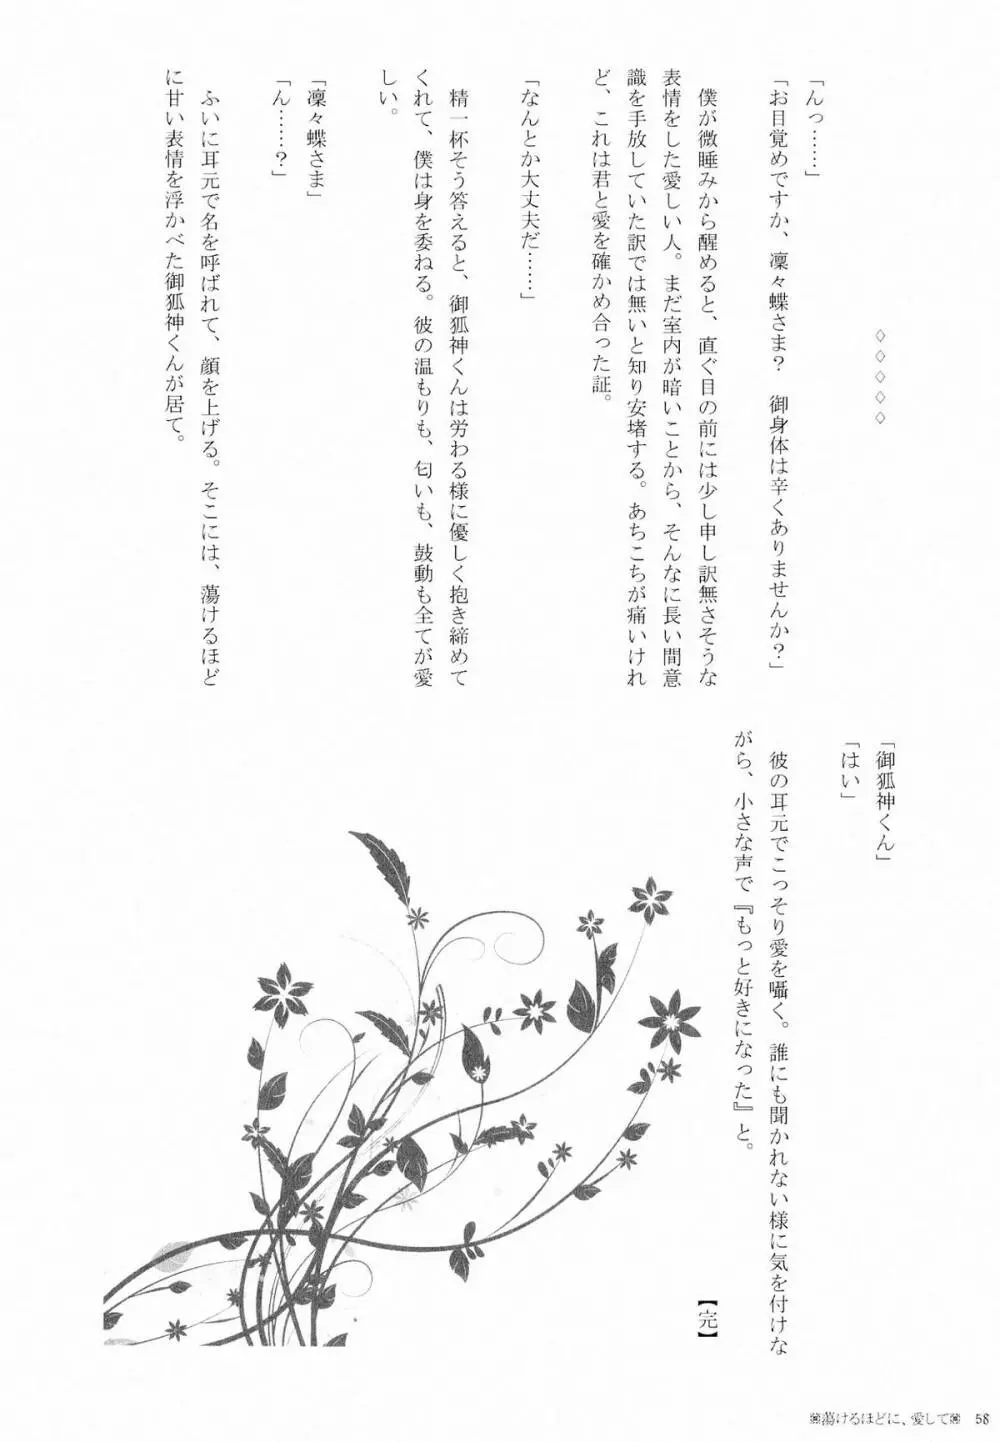 ◇◇◇◇◇
「んっ……」
「お目覚めですか、凜々蝶さま？　御身体は辛くありませんか？」
　僕が微睡みから醒めると、直ぐ目の前には少し申し訳無さそうな
表情をした愛しい人。まだ室内が暗いことから、そんなに長い間意
識を手放していた訳では無いと知り安堵する。あちこちが痛いけれ
ど、これは君と愛を確かめ合った証。
「なんとか大丈夫だ……」
　精一杯そう答えると、御狐神くんは労わる様に優しく抱き締めて
くれて、僕は身を委ねる。彼の温もりも、匂いも、鼓動も全てが愛
しい。
「凜々蝶さま」
「ん……？」
　ふいに耳元で名を呼ばれて、顔を上げる。そこには、蕩けるほど
に甘い表情を浮かべた御狐神くんが居て。
「御狐神くん」
「はい」
　彼の耳元でこっそり愛を囁く。誰にも聞かれない様に気を付けな
がら、小さな声で『もっと好きになった』と。
【完】
❀蕩けるほどに、愛して❀　58